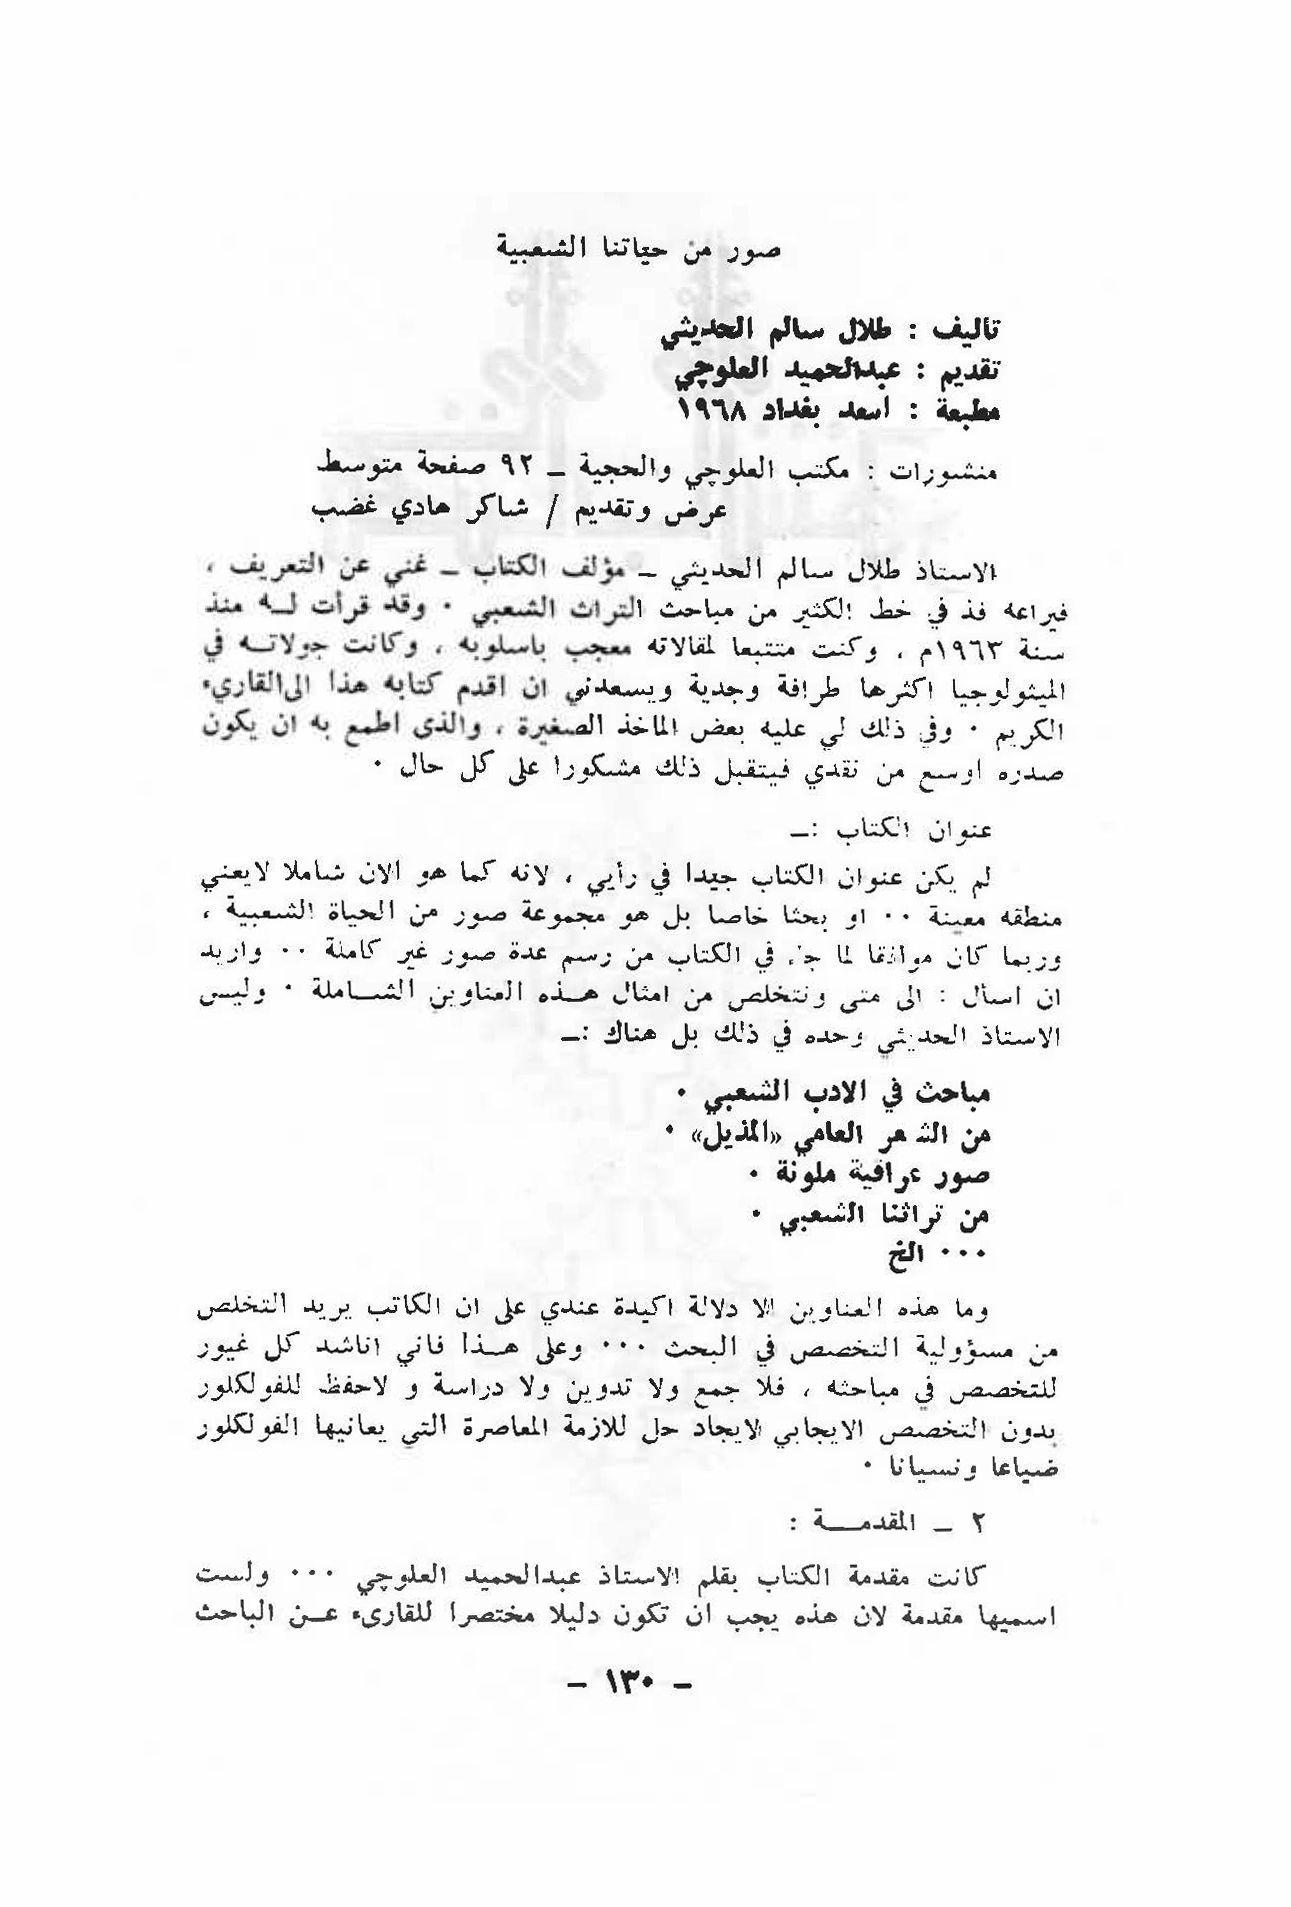 صور من حياتنا الشعبية
تأليف : طلال سالم الحديثي
تقديم : عبدالحميد العلوچي
مطبعة : اسعد بغداد ١٩٦٨
منشورات : مكتب العلوچي والحجية ـ ٩٢ صفحة متوسط
عرض وتقديم / شاكر هادي غضب
الاستاذ طلال سالم الحديثي ـ مؤلف الكتاب ـ غني عن التعريف ،
فيراعه فذ في خط الكثير من مباحث التراث الشعبي . وقد قرأت لـه منذ
سنة ١٩٦٣م ، وكنت متتبعا لمقالاته معجب باسلوبه ، وكانت جولاتـه في
الميثولوجيا اكثرها طرافة وجدية ويسعدني ان اقدم كتابه هذا الى القارىء
الكريم . وفي ذلك لي عليه بعض المآخذ الصغيرة ، والذى اطمع به ان يكون
صدره اوسع من نقدي فيتقبل ذلك مشكورا على كل حال .
عنوان الكتاب :ـ
لم يكن عنوان الكتاب جيدا في رأيي ، لانه كما هو الان شاملا لايعني
منطقه معينة .. او بحثا خاصا بل هو مجموعة صور من الحياة الشعبية ،
وربما كان موافقا لما جاء في الكتاب من رسم عدة صور غير كاملة .. واريد
ان اسأل : الى متى ونتخلص من امثال هـذه العناوين الشـاملة . وليس
الاستاذ الحديثي وحده في ذلك بل هناك :ـ
مباحث في الادب الشعبي .
من الشعر العامي «المذيل» .
صور عراقية ملونة .
من تراثنا الشعبي .
... الخ
وما هذه العناوين الا دلالة اكيدة عندي على ان الكاتب يريد التخلص
من مسؤولية التخصص في البحث ... وعلى هـذا فاني اناشد كل غيور
للتخصص في مباحثه ، فلا جمع ولا تدوين ولا دراسة و لاحفظ للفولكلور
بدون التخصص الايجابي لايجاد حل للازمة المعاصرة التي يعانيها الفولكلور
ضياعا ونسيانا .
٢ ـ المقدمـة :
كانت مقدمة الكتاب بقلم الاستاذ عبدالحميد العلوچي ... ولست
اسميها مقدمة لان هذه يجب ان تكون دليلا مختصرا للقارىء عـن الباحث
- ١٣٠ -